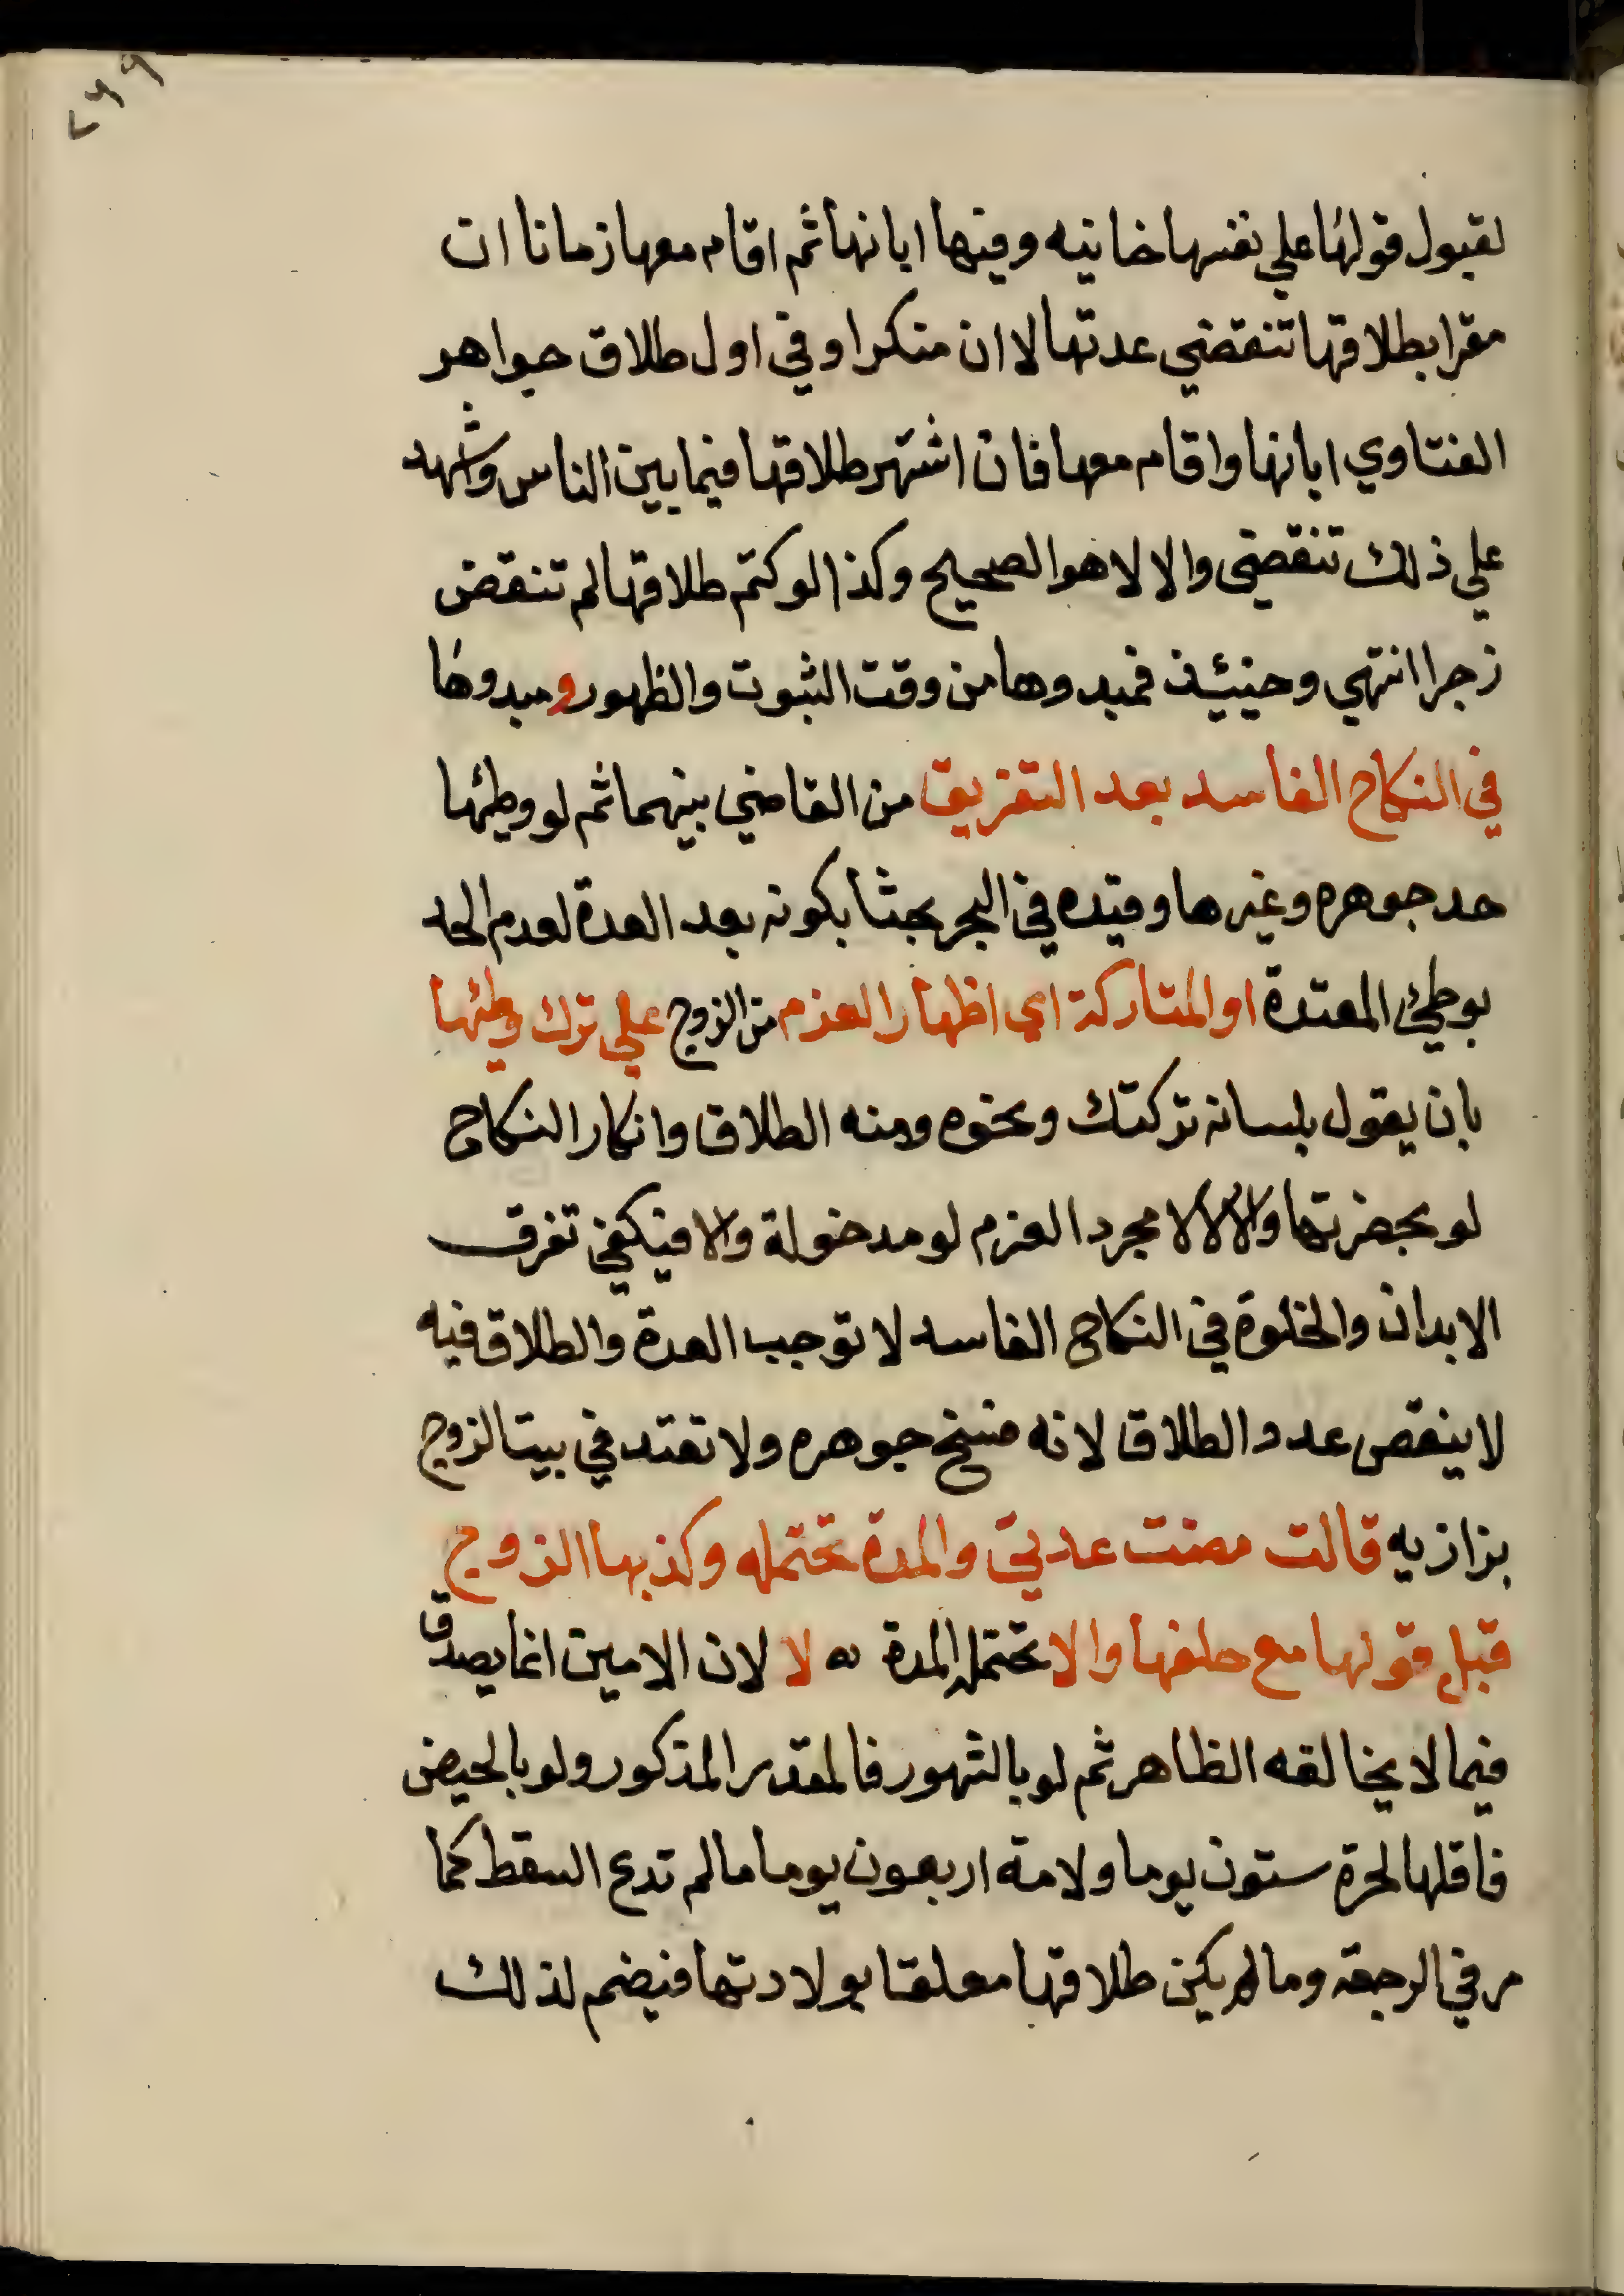 ٢٩٩
لقبول قولها علي نفسها خانيه وفيها ابانها ثم اقام معها زمانا ان
مقرا بطلاقها تنقضي عدتها لا ان منكرا وفي اول طلاق جواهر
الفتاوي ابانها واقام معها فان اشتهر طلاقها فيما بين الناس وشهد
علي ذلك تنقضي والا لا هو الصحيح وكذا لو كتم طلاقها لم تنقض
زجرا انتهي وحينئذ فمبدوها من وقت الثبوت والظهور ومبدوها
في النكاح الفاسد بعد التفريق من القاضي بينهما ثم لو وطئها
حد جوهره وغيرها وقيده في البحر بحثا بكونه بعد العدة لعدم الحد
بوطئ المعتدة او المتاركة اي اظهار العزم من الزوج علي ترك وطئها
بان يقول بلسانه تركتك ونحوه ومنه الطلاق وانكار النكاح
لو بحضرتها والا لا لا مجرد العزم لو مدخولة والا فيكفي تفرق
الابدان والخلوة في النكاح الفاسد لا توجب العدة والطلاق فيه
لا ينقص عدد الطلاق لانه فسخ جوهره ولا تعتد في بيت الزوج
بزازيه قالت مضت عدتي والمدة تحتمله وكذبها الزوج
قبل قولها مع حلفها والا تحتمل المدة لا لان الامين انما يصدق
فيما لا يخالفه الظاهر ثم لو بالشهور فالمقدر المذكور ولو بالحيض
فاقلها لحرة ستون يوما ولامة اربعون يوما ما لم تدع السقط كما
مر في الرجعة وما لم يكن طلاقها معلقا بولادتها فيضم لذلك